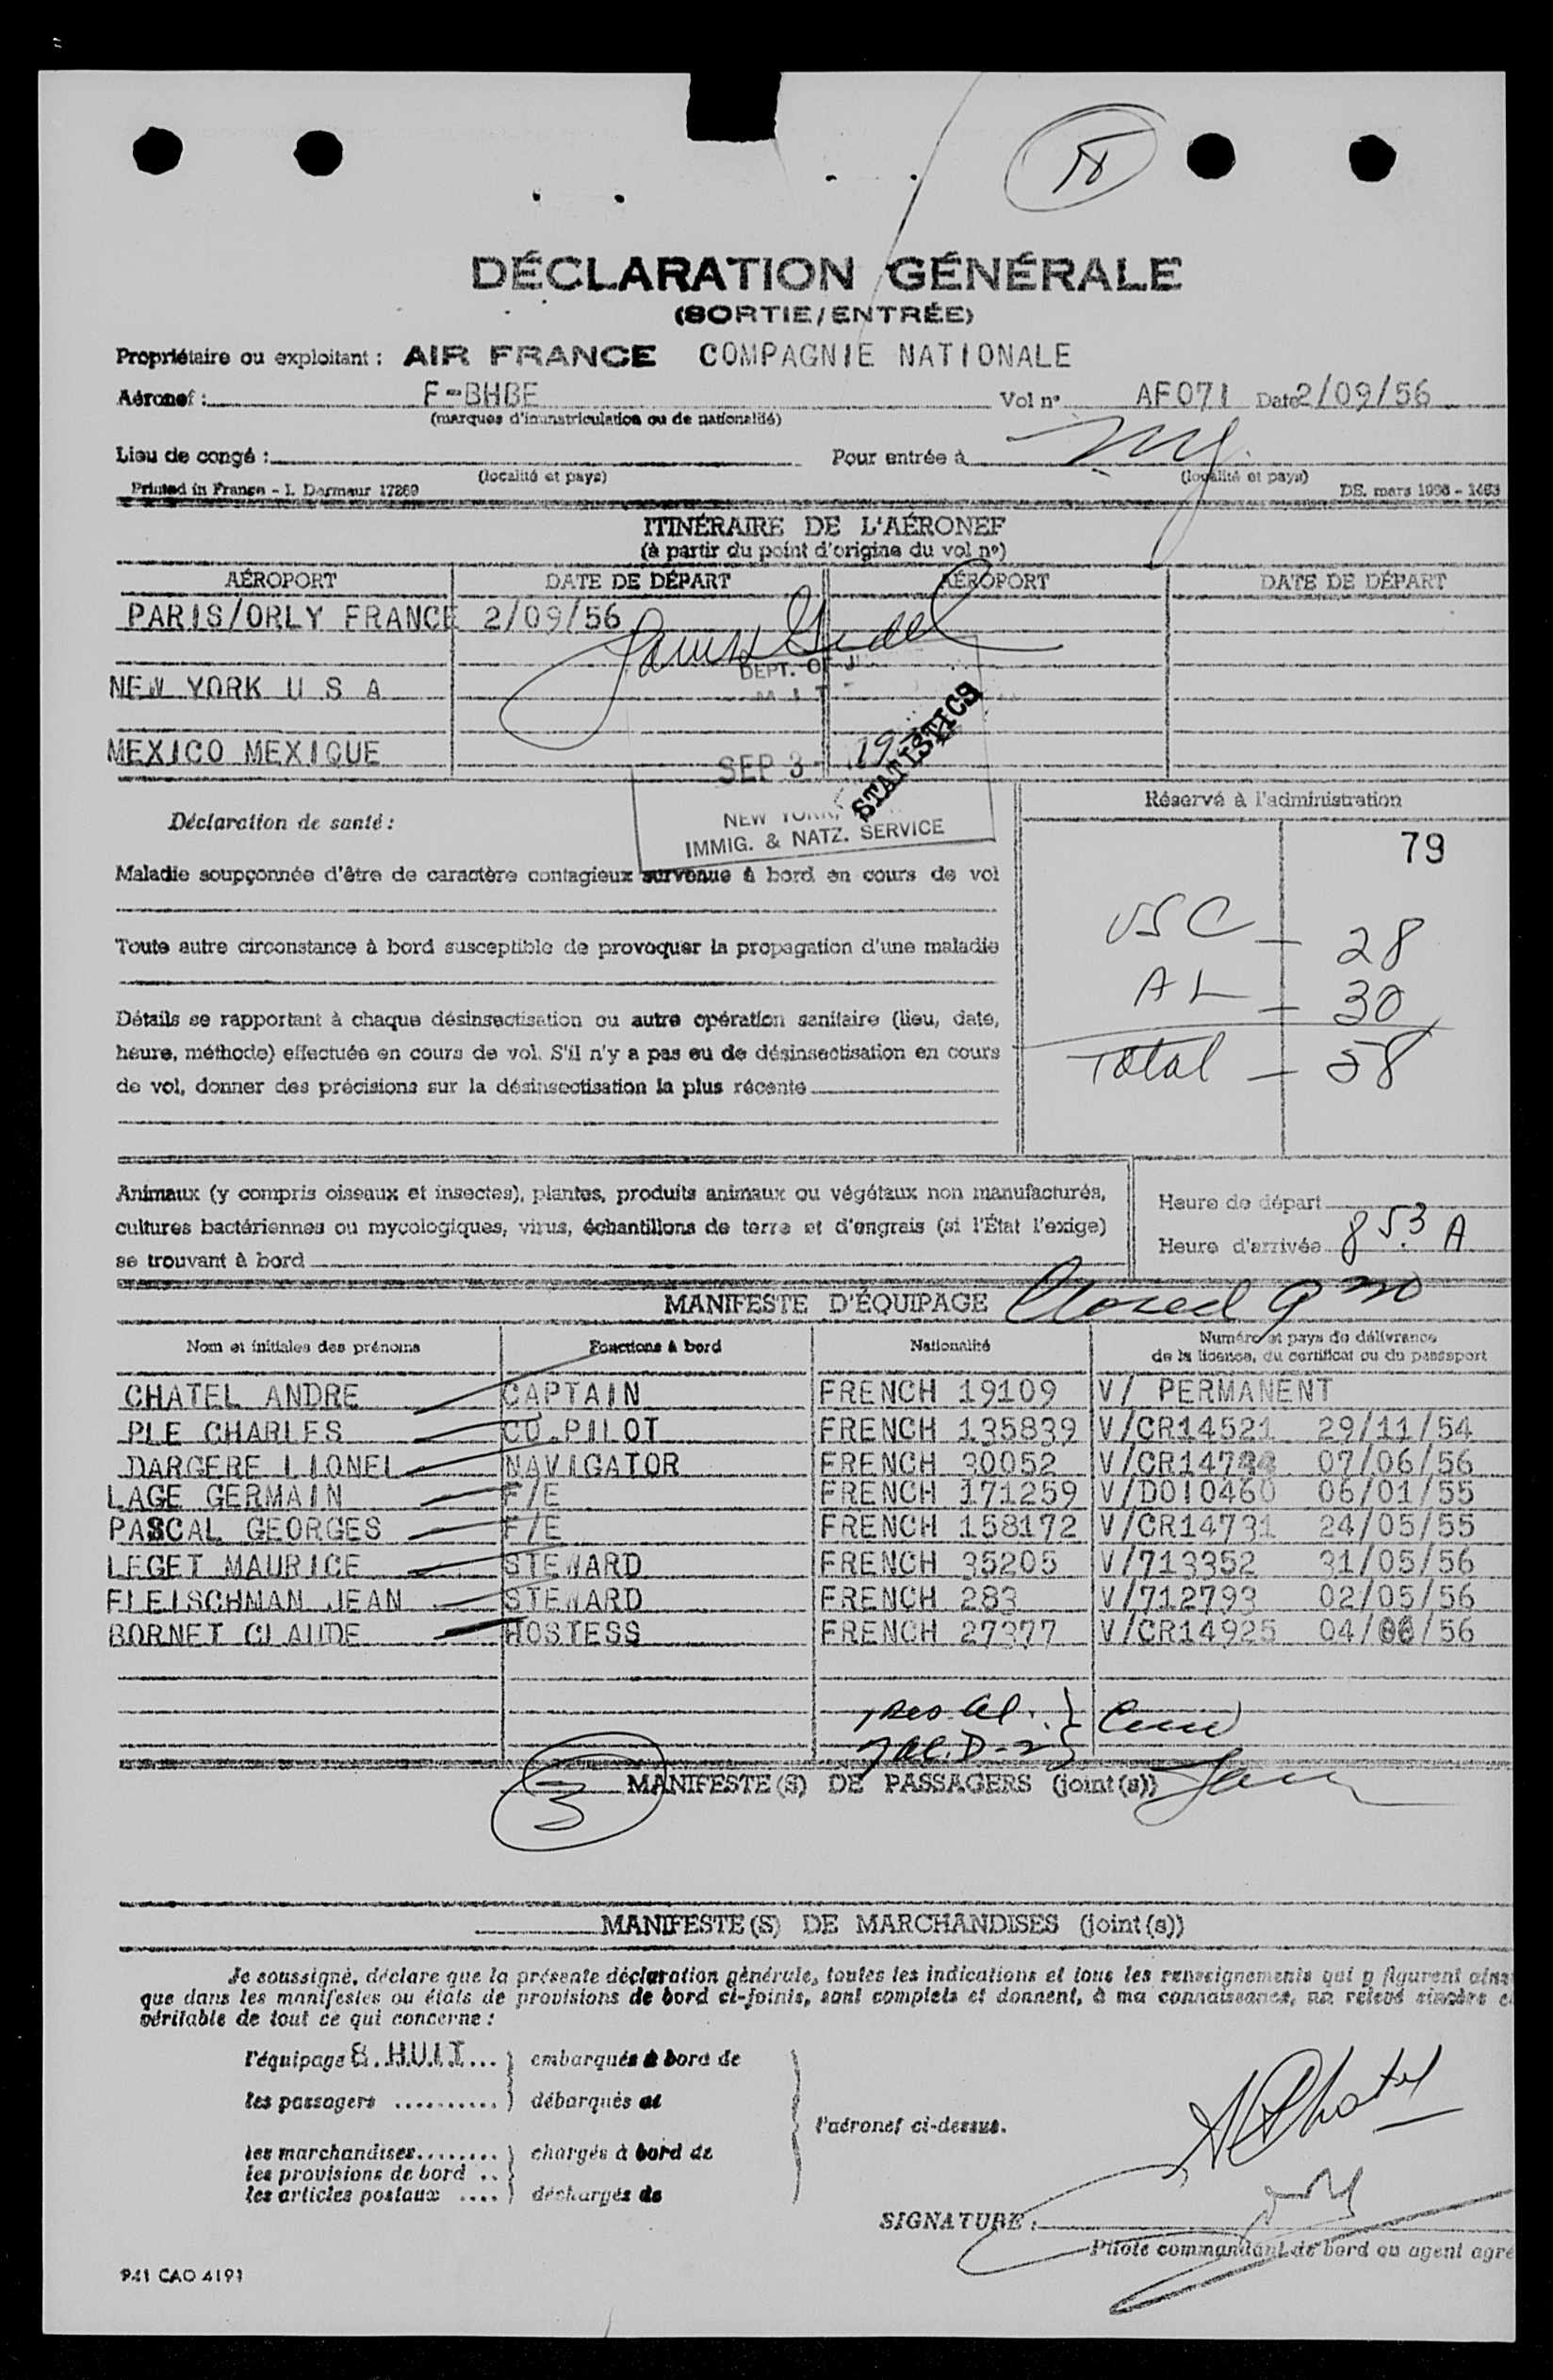 58
DÉCLARATION GÉNÉRALE
(SORTIE/ENTRÉE)
Propriétaire ou exploitant : AIR FRANCE COMPAGNIE NATIONALE
Aéronef : F-BHBE Vol nº AF071 Date 2/09/56
(marques d'immatriculation ou de nationalité)
Lieu de congé : Pour entrée à NY
(localité et pays) (localité et pays)
Printed in France - I. Darmaur 17269 DE. mars 1956 - 1463
ITINÉRAIRE DE L'AÉRONEF
(à partir du point d'origine du vol nº)
AÉROPORT DATE DE DÉPART AÉROPORT DATE DE DÉPART
PARIS/ORLY FRANCE 2/09/56
DEPT. OF J
NEW YORK U S A
MEXICO MEXIQUE
SEP 3 19
STATISTICS
NEW YORK,
IMMIG. & NATZ. SERVICE
Réservé à l'administration
79
Déclaration de santé :
Maladie soupçonnée d'être de caractère contagieux survenue à bord en cours de vol
USC - 28
Toute autre circonstance à bord susceptible de provoquer la propagation d'une maladie
AL - 30
Détails se rapportant à chaque désinsectisation ou autre opération sanitaire (lieu, date,
heure, méthode) effectuée en cours de vol. S'il n'y a pas eu de désinsectisation en cours
de vol, donner des précisions sur la désinsectisation la plus récente
Total - 58
Animaux (y compris oiseaux et insectes), plantes, produits animaux ou végétaux non manufacturés,
cultures bactériennes ou mycologiques, virus, échantillons de terre et d'engrais (si l'État l'exige)
se trouvant à bord
Heure de départ
Heure d'arrivée 8 53 A
MANIFESTE D'ÉQUIPAGE Closed 9 20
Nom et initiales des prénoms Fonctions à bord Nationalité Numéro et pays de délivrance
de la licence, du certificat ou du passeport
CHATEL ANDRE CAPTAIN FRENCH 19109 V/ PERMANENT
PLE CHARLES CO.PILOT FRENCH 135839 V/CR14521 29/11/54
DARGERE LIONEL NAVIGATOR FRENCH 30052 07/06/56
LAGE GERMAIN F/E FRENCH 171259 V/DO10460 06/01/55
PASCAL GEORGES F/E FRENCH 158172 V/CR14731 24/05/55
LEGET MAURICE STEWARD FRENCH 35205 V/713352 31/05/56
FLEISCHMAN JEAN STEWARD FRENCH 283 V/712793 02/05/56
BORNET CLAUDE HOSTESS FRENCH 27377 V/CR14925
3 MANIFESTE(S) DE PASSAGERS (joint(s))
MANIFESTE(S) DE MARCHANDISES (joint(s))
Je soussigné, déclare que la présente déclaration générale, toutes les indications et tous les renseignements qui y figurent ains
que dans les manifestes ou états de provisions de bord ci-joints, sont complets et donnent, à ma connaissance, un relevé sincère e
véritable de tout ce qui concerne :
l'équipage 8.HUIT... embarqués à bord de
les passagers .......... débarqués de
l'aéronef ci-dessus.
les marchandises........ chargés à bord de
les provisions de bord ..
les articles postaux .... déchargés de
A Chatel
SIGNATURE :
Pilote commandant de bord ou agent agré
941 CAO 4191